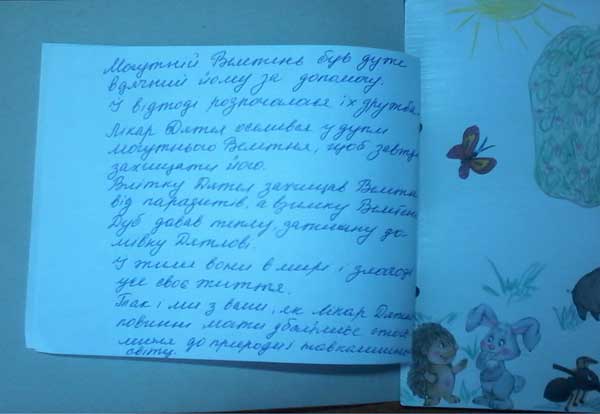 Могутній Велетень був дуже
вдячний йому за допомогу.
І відтоді розпочалася їх дружба.
Лікар Дятел оселився у дуплі
могутнього Велетня, щоб завжди
захищати його.
Влітку Дятел захищав Велетня
від паразитів, а взимку Велетень
Дуб давав теплу, затишну до-
мівку Дятлові.
І жили вони в мирі і злагоді
усе своє життя.
Так і ми з вами, як лікар Дятел
повинні мати дбайливе став
лення до природи і навколишнього
світу.